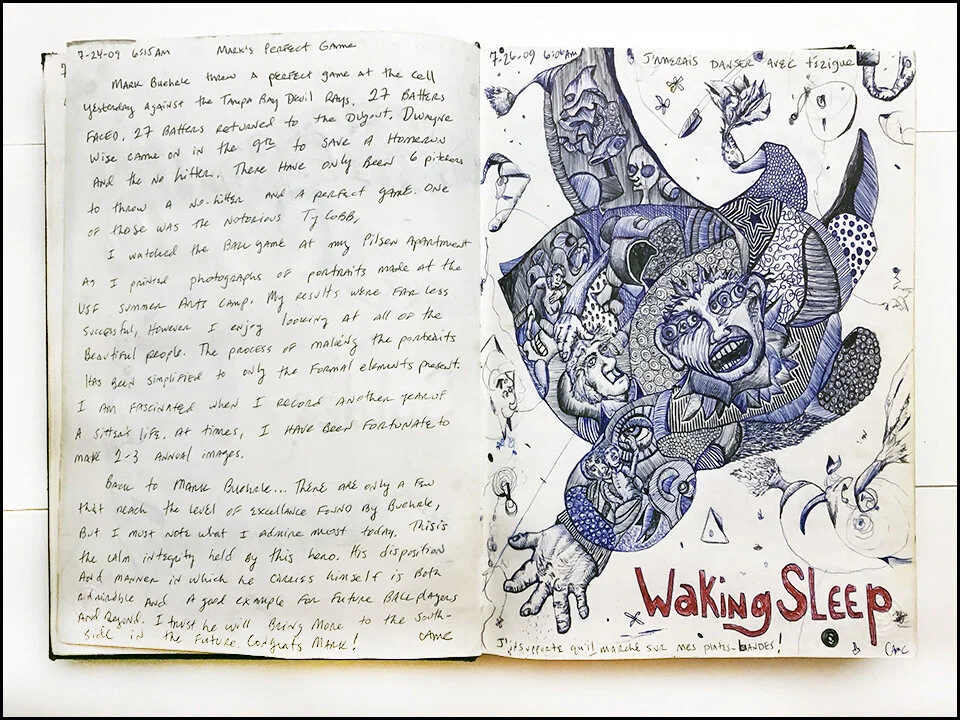 7-24-09 6:15AM Mark's Perfect Game
Mark Buehrle threw a perfect game at the cell
yesterday against the Tampa Bay Devil Rays. 27 batters
faced, 27 batters returned to the dugout. Dwayne
Wise came on in the 9th to save a homerun
and the no hitter. There have only been 6 pitchers
to throw a no-hitter and a perfect game. One
of those was the notorious Ty Cobb.
I watched the ball game at my Pilsen apartment
as I printed photographs of portraits made at the
USF summer arts camp. My results were far less
successful, however I enjoy looking at all of the
beautiful people. The process of making the portraits
has been simplified to only the formal elements present.
I am fascinated when I record another year of
a sitter's life. At times, I have been fortunate to
make 2-3 annual images.
Back to Mark Buehrle... There are only a few
that reach the level of excellance found by Buehrle,
but I must note what I admire most today. This is
the calm integrity held by this hero. His disposition
and manner in which he carries himself is both
admirable and a good example for future ballplayers
and beyond. I trust he will bring more to the south-
side in the future. Congrats Mark! CAMC
7-26-09 6:06AM J'amerais danser avec
Waking Sleep
qu'il marche sur mes plates-bandes! CAMC